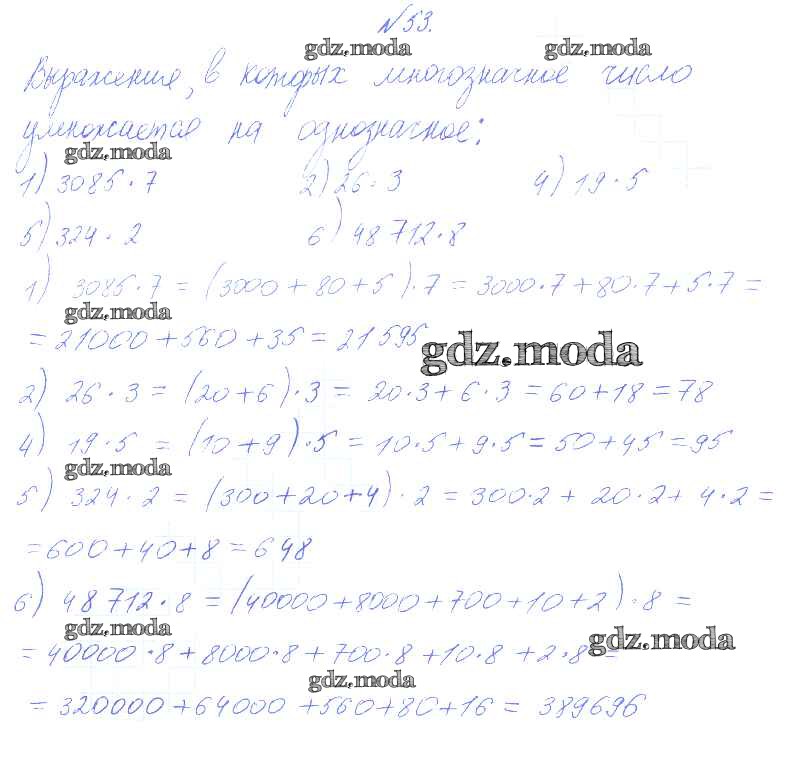 №53.
gdz.moda gdz.moda
Выражения, в которых многозначное число
умножается на однозначное:
gdz.moda
1) 3085·7 2) 26·3 4) 19·5
5) 324·2 6) 48712·8
1) 3085·7 = (3000+80+5)·7 = 3000·7+80·7+5·7 =
gdz.moda
= 21000+560+35 = 21595
gdz.moda
2) 26·3 = (20+6)·3 = 20·3+6·3 = 60+18 = 78
4) 19·5 = (10+9)·5 = 10·5+9·5 = 50+45 = 95
gdz.moda
5) 324·2 = (300+20+4)·2 = 300·2+20·2+4·2 =
= 600+40+8 = 648
6) 48712·8 = (40000+8000+700+10+2)·8 =
gdz.moda
= 40000·8+8000·8+700·8+10·8+2·8 =
gdz.moda
gdz.moda
= 320000+64000+560+80+16 = 389696